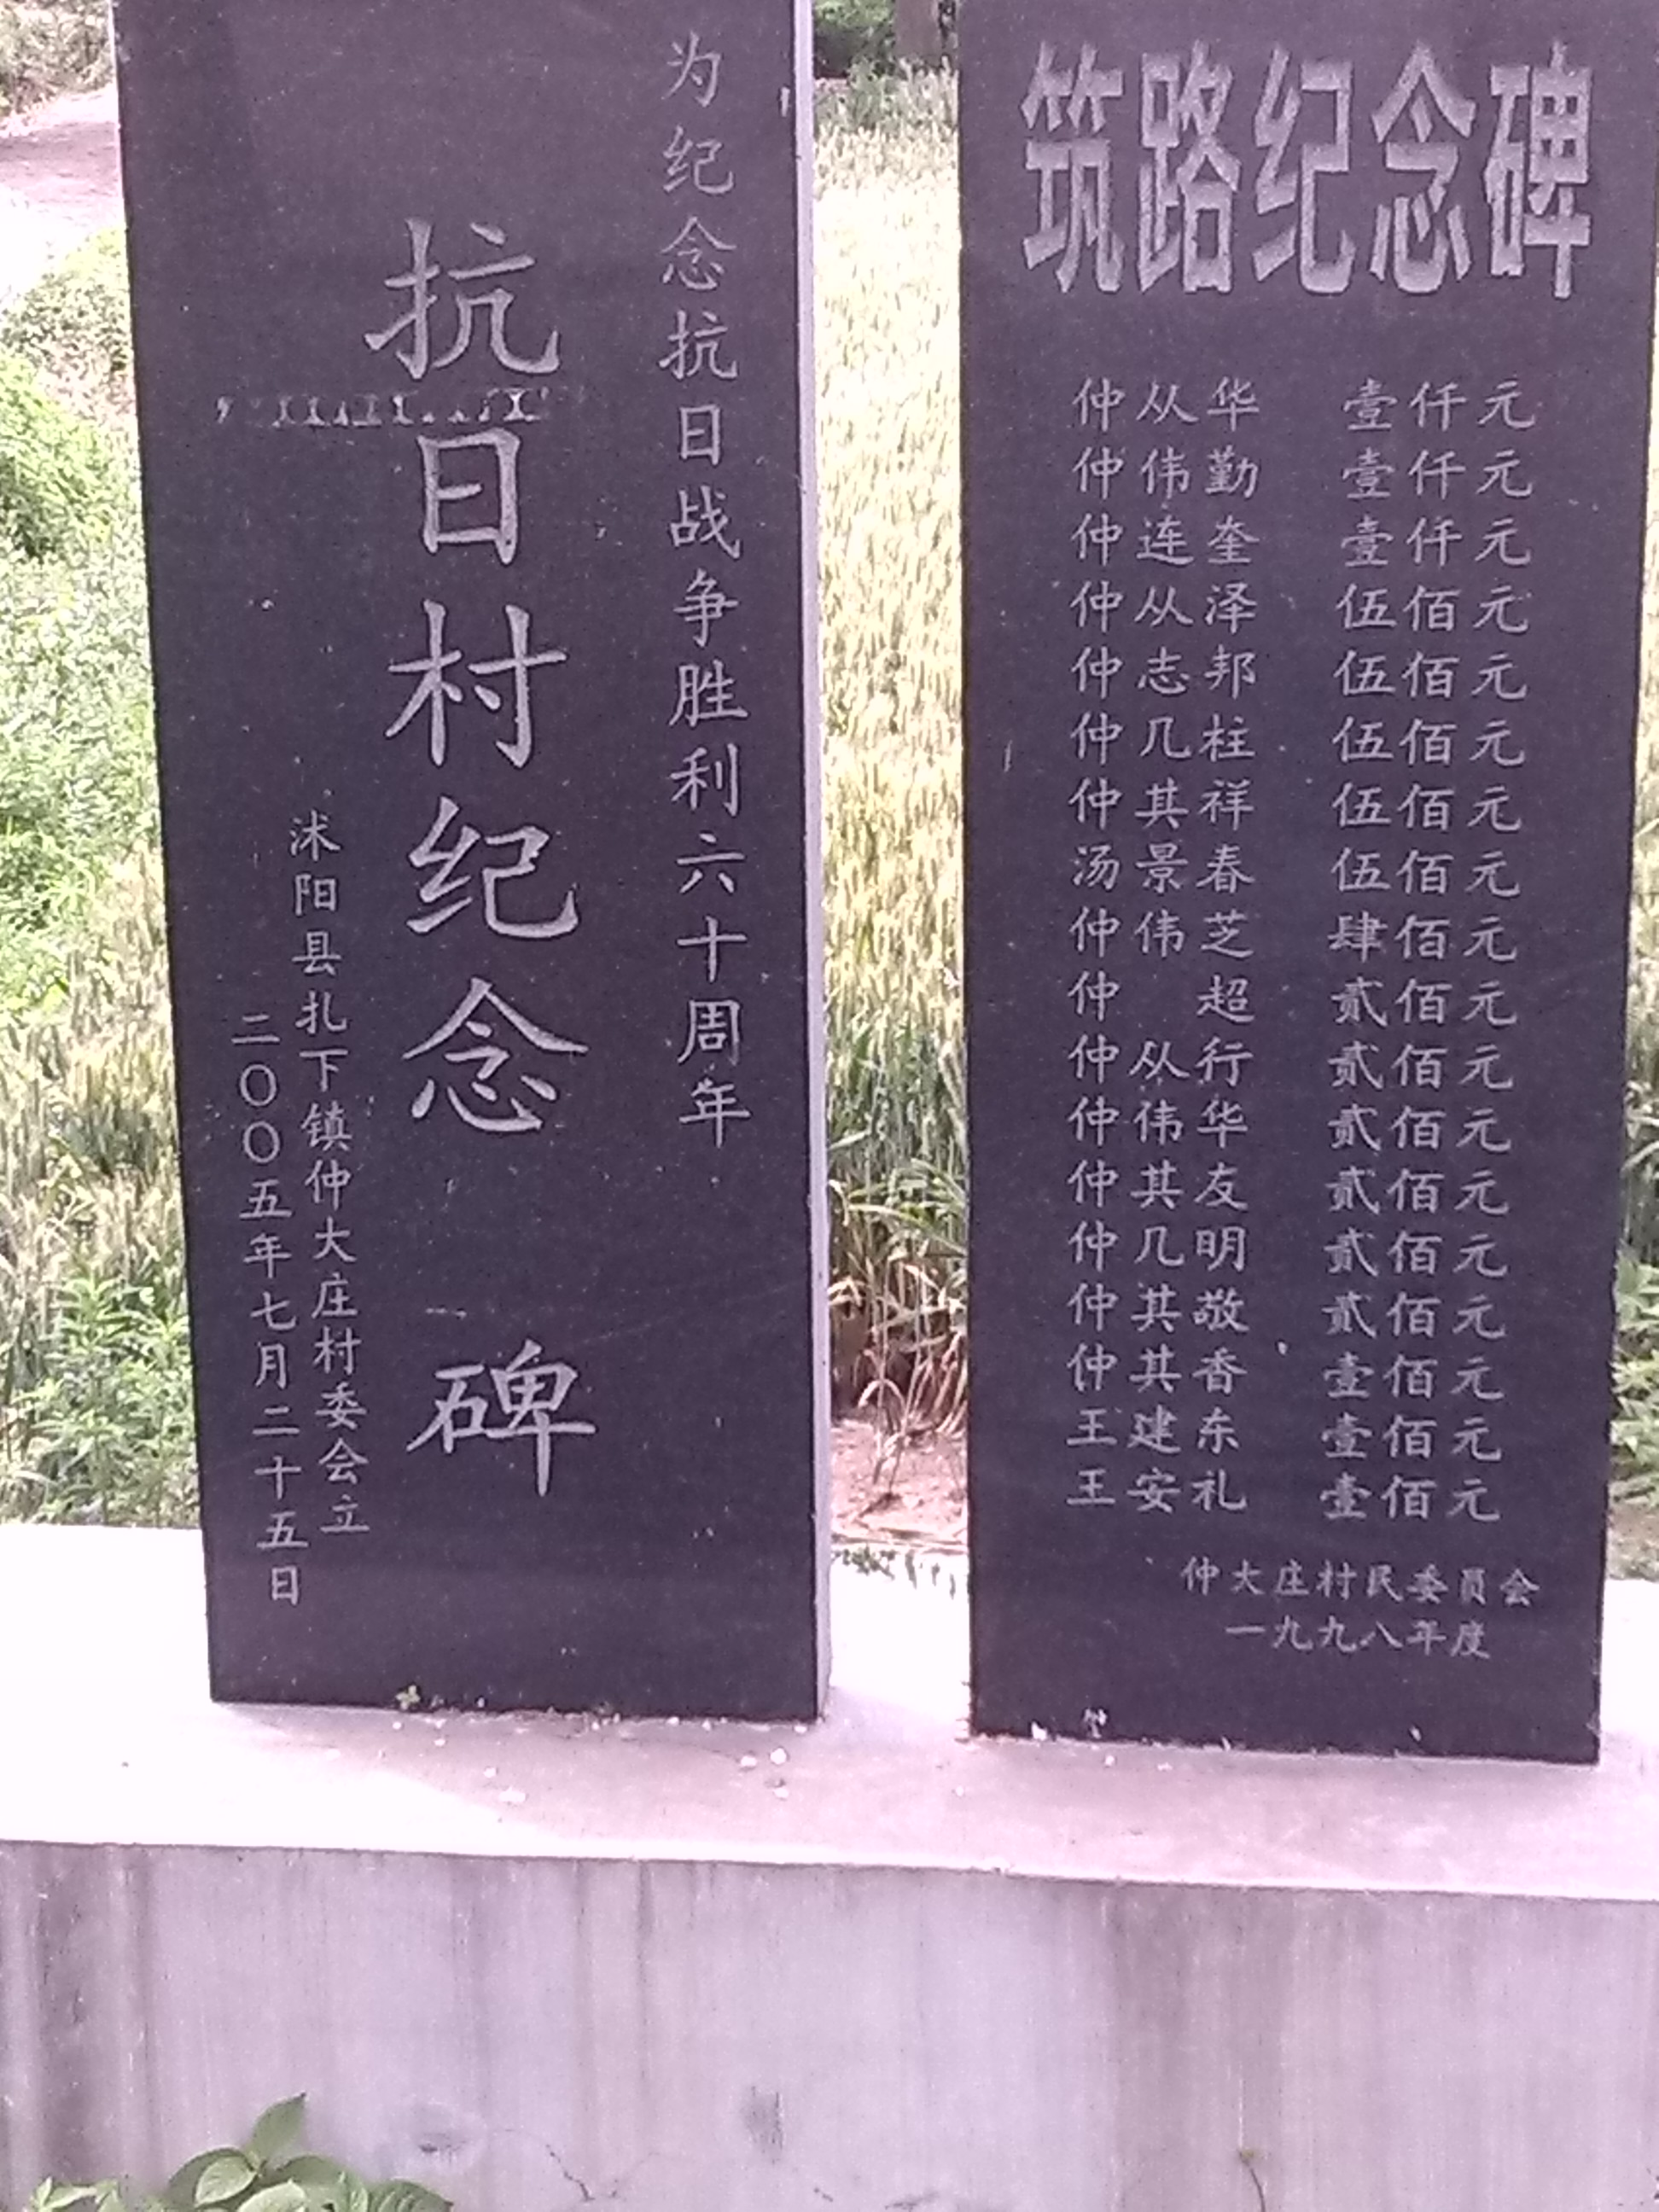 为纪念抗日战争胜利六十周年
抗日村纪念碑
沭阳县扎下镇仲大庄村委会立
二〇〇五年七月二十五日
筑路纪念碑
仲从华 壹仟元
仲伟勤 壹仟元
仲连奎 壹仟元
仲从泽 伍佰元
仲志邦 伍佰元
仲几柱 伍佰元
仲其祥 伍佰元
汤景春 伍佰元
仲伟芝 肆佰元
仲超 贰佰元
仲从行 贰佰元
仲伟华 贰佰元
仲其友 贰佰元
仲几明 贰佰元
仲其敬 贰佰元
仲其香 壹佰元
王建东 壹佰元
王安礼 壹佰元
仲大庄村民委员会
一九九八年度